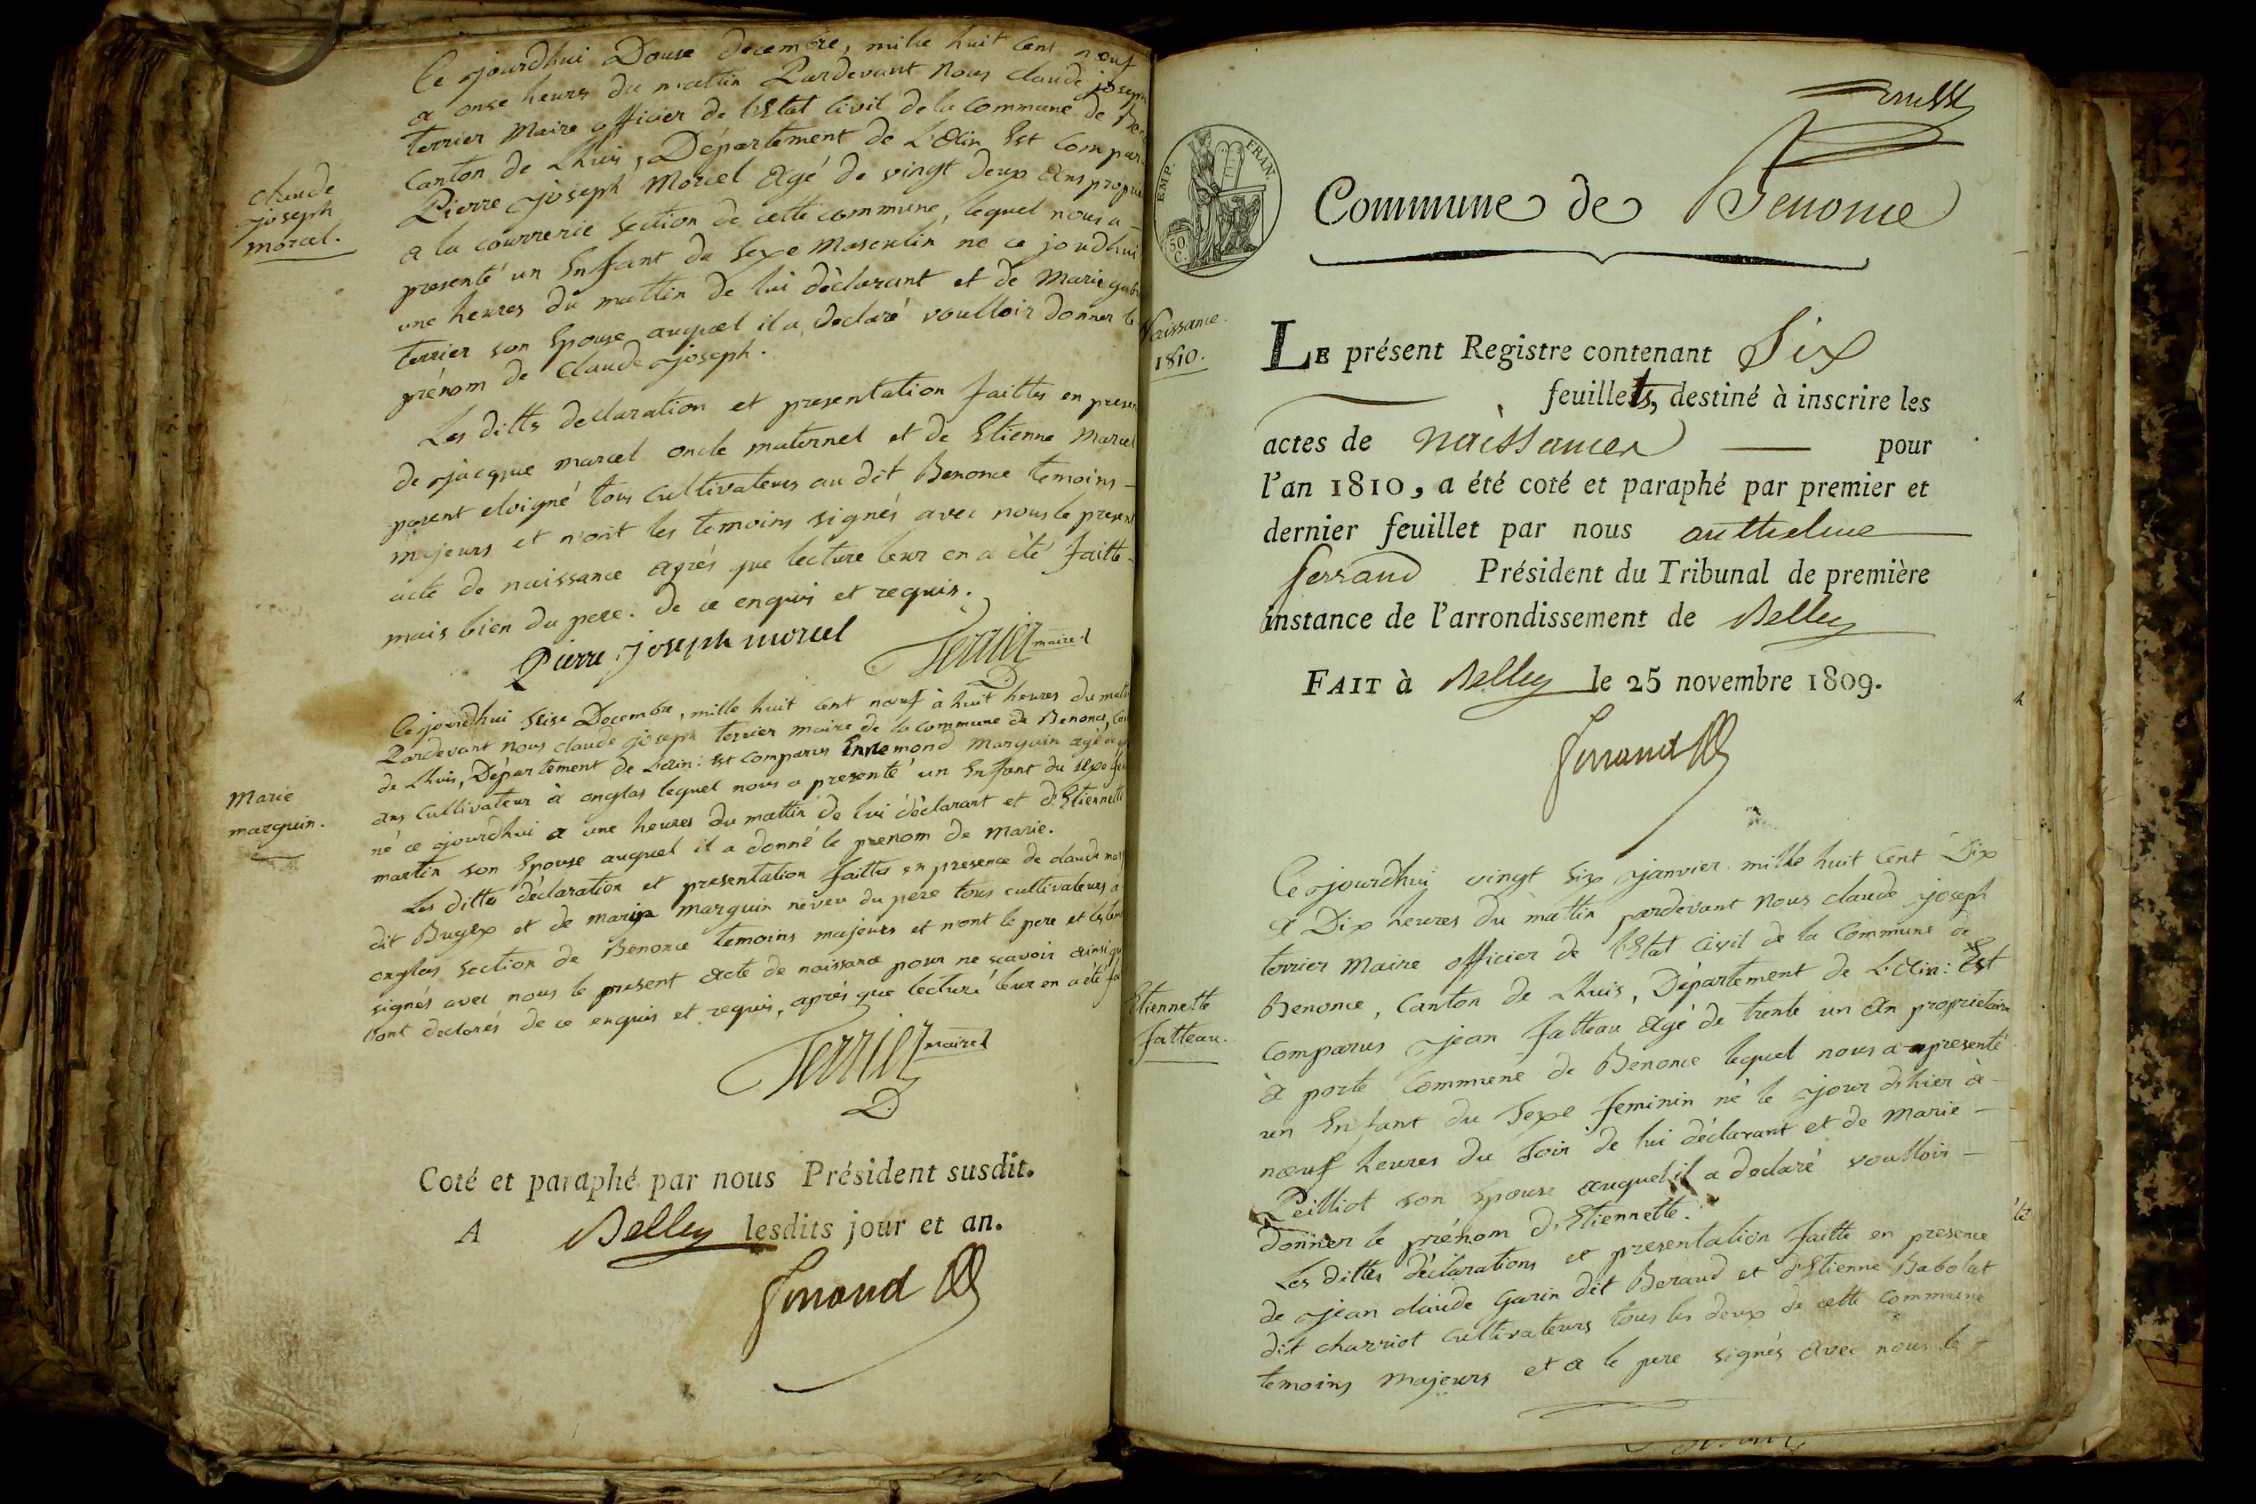 Ce jourdhui Douse decembre, mille huit cens nœuf
a onse heures du mattin Pardevant Nous Claude joseph
terrier Maire officier de l'Etat Civil de la Commune de Ben
Canton de Lhuis, Département de L'Ain Est Compar
Pierre joseph Morcel Agé de vingt deux Ans proprie
a la courrerie section de cette commune, lequel nous a
presenté un Enfant du Sexe Masculin né ce jourdhui
une heures du mattin de lui déclarant et de Marie
terrier son Epouse auquel il a declaré voulloir donner le
prénom de Claude joseph.
Claude
joseph
morcel.
Les dittes déclaration et presentation faittes en presen
de jacque marcel oncle maternel et de Etienne Marcel
parent eloigné tous cultivateurs au dit Benonce temoins
majeurs et n'ont les temoins signés avec nous le present
acte de naissance aprés que lecture leur en a été faitte
mais bien du pere. de ce enquis et requis.
Pierre joseph morcel
Terrier maire
D
Ce jourdhui Seise Decembre, mille huit cent nœuf à huit heures du matti
Pardevant nous claude joseph terrier maire de la commune de Benonce, Can
de Lhuis, Département de L'ain: Est comparus Ennemond Marguin agé
ans Cultivateur à onglas lequel nous a presenté un Enfant du sexe
né ce jourdhui a une heures du mattin de lui déclarant et d'Etiennette
martin son Epouse auquel il a donné le prenom de Marie.
Marie
marguin.
Les dittes déclaration et presentation faittes en presence de claude
dit Bugex et de marguin neveu du pere tous cultivateurs a
onglas section de Benonce temoins majeurs et n'ont le pere et les
signés avec nous le present acte de naissance pour ne scavoir ainsi
l'ont declarés de ce enquis et requis, aprés que lecture leur en a été
Terrier maire
D.
Coté et paraphé par nous Président susdit.
A Belley lesdits jour et an.
Ferrand
EMP. FRAN.
50 C.
Commune de Benonce
Naissance.
1810.
LE présent Registre contenant Six
feuillets, destiné à inscrire les
actes de naissances pour
l'an 1810, a été coté et paraphé par premier et
dernier feuillet par nous anthelme
ferrand Président du Tribunal de première
instance de l'arrondissement de Belley
FAIT à Belley le 25 novembre 1809.
Ferrand
Ce jourdhuy vingt six janvier mille huit cent Dix
a Dix heures du mattin pardevant Nous claude joseph
terrier Maire officier de l'Etat civil de la Commune de
Benonce, Canton de Lhuis, Département de L'Ain: Est
comparus jean fatteau Agé de trente un An proprietaire
à porte Commune de Benonce lequel nous a presenté
un Enfant du Sexe feminin né le jour d'hier à
nœuf heures du soir de lui déclarant et de Marie
Peilliot son Epouse auquel il a declaré voulloir
Donner le prénom d'Etiennette.
Etiennette
fatteau.
Les dittes déclarations et presentation faitte en presence
de jean claude Garin dit Beraud et d'Etienne Babolat
dit charriot cultivateurs tous les deux de cette commune
temoins majeurs et a le pere signés avec nous le